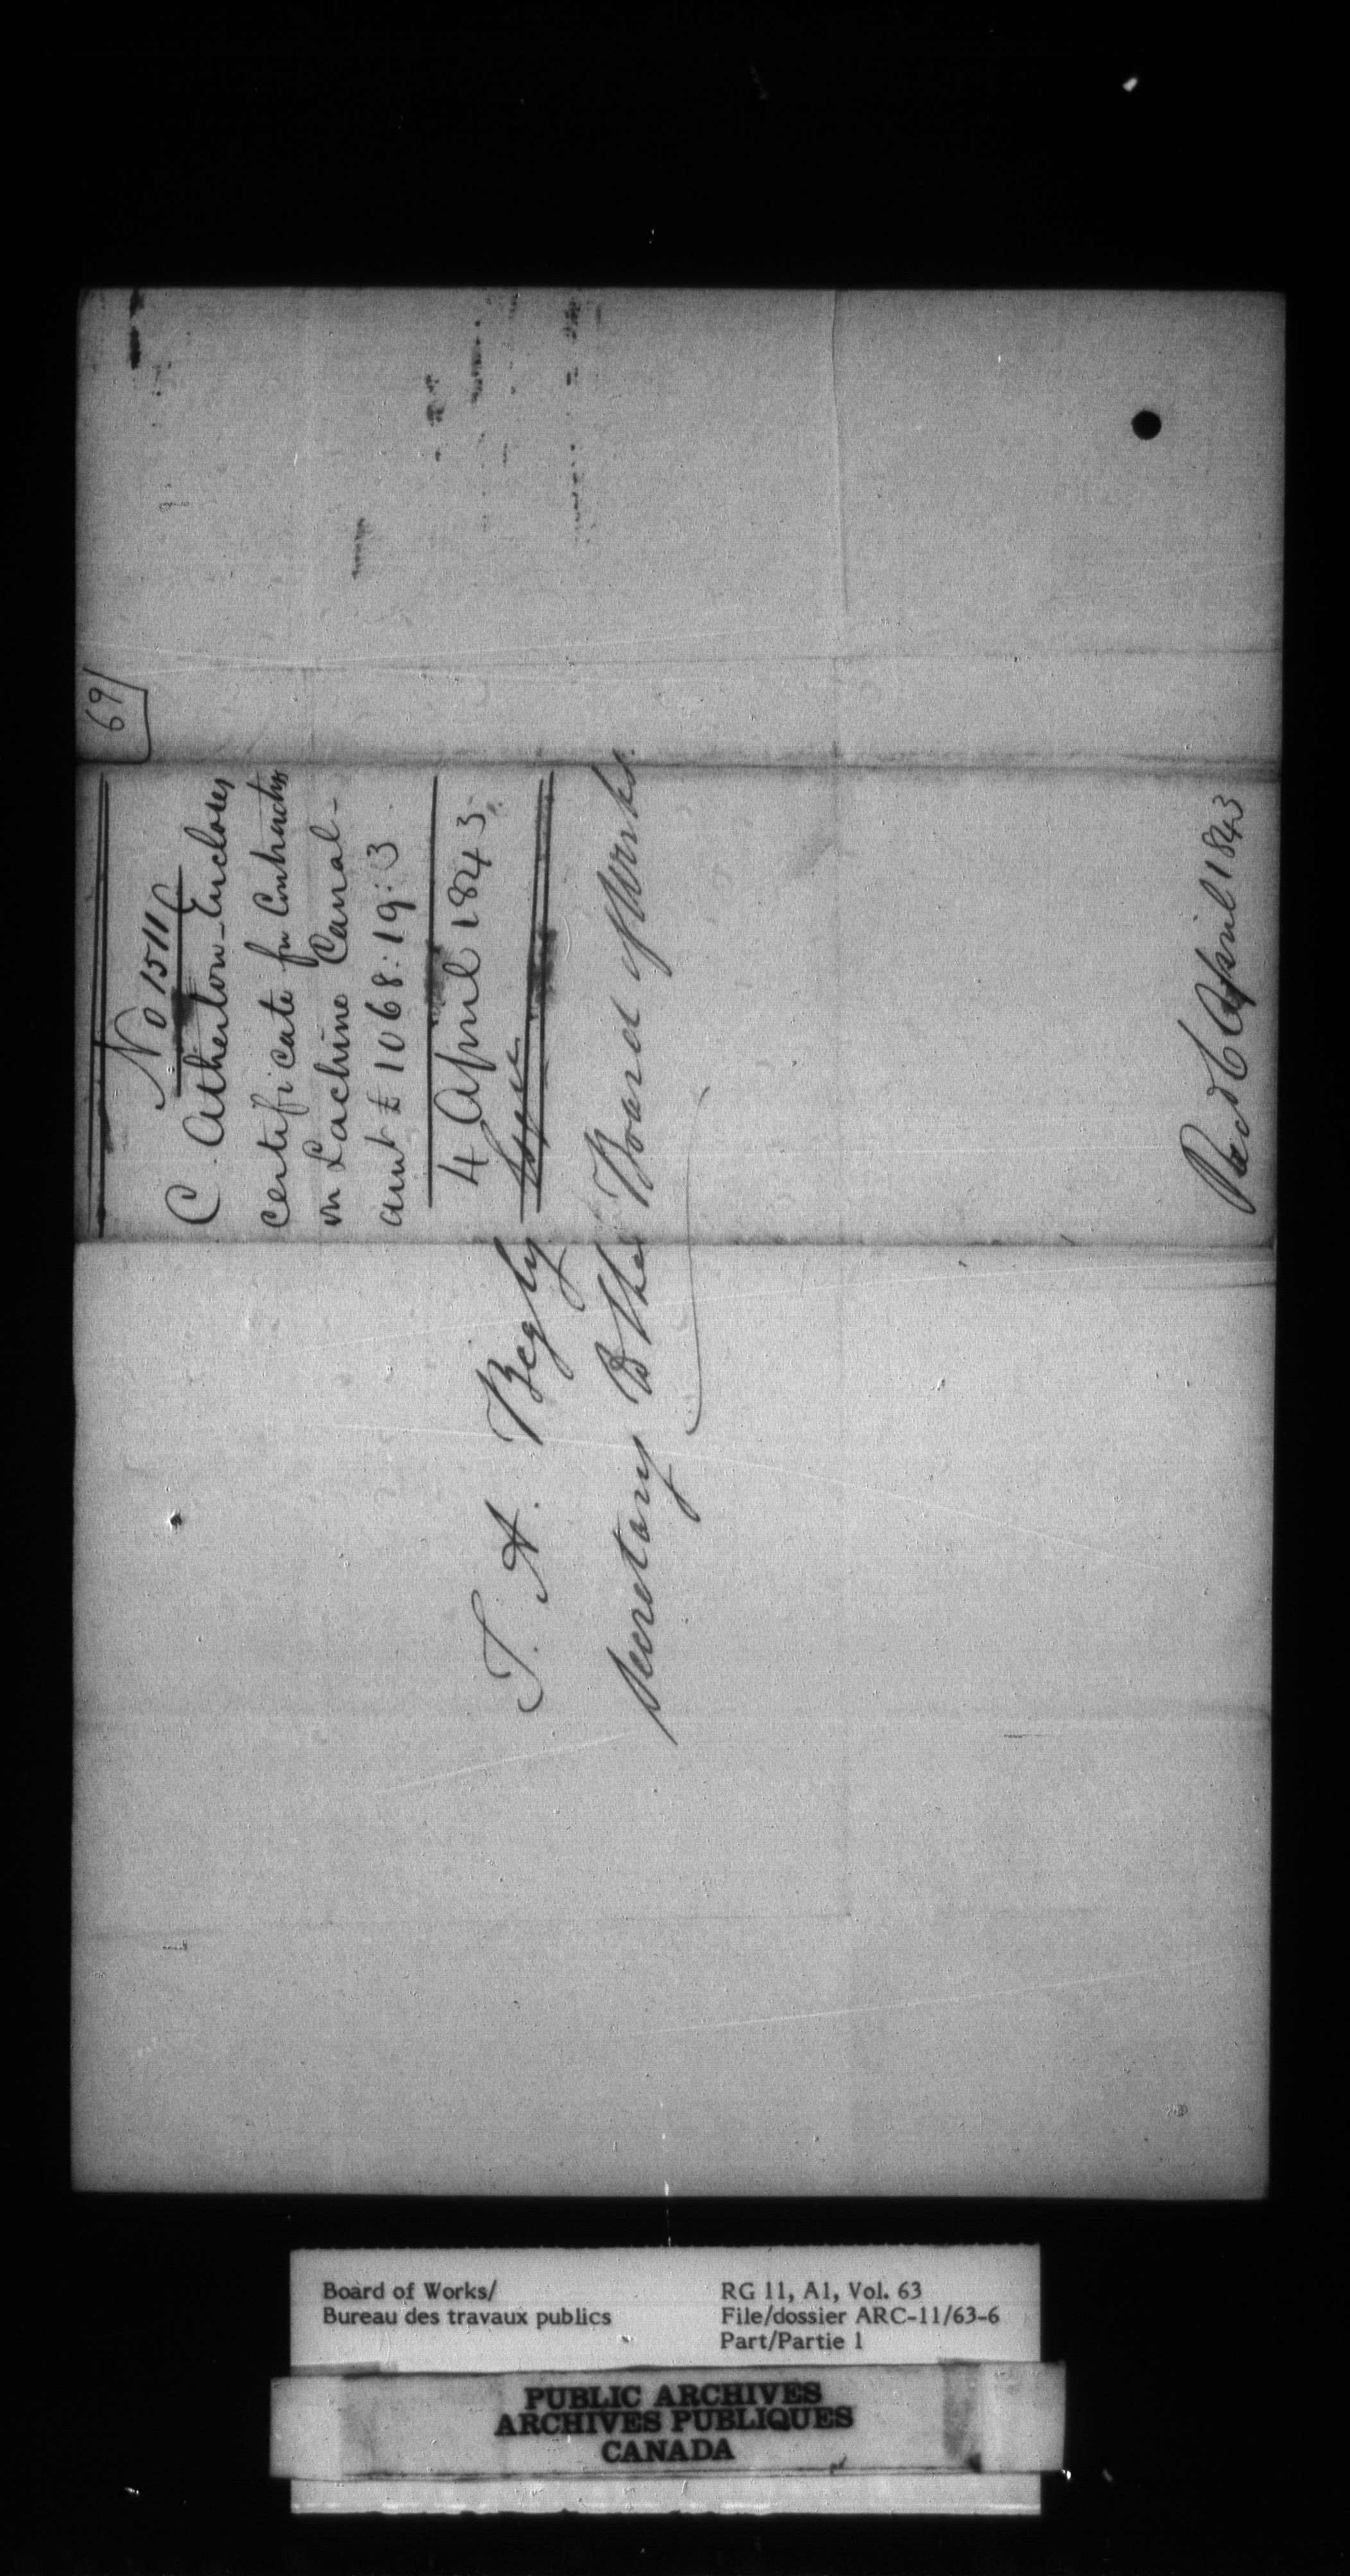 69
No 1511
C Atherton - Encloses
Certificate for Contractors
on Lachine Canal -
amt £1068:19:3
4 April 1843
T. A. Begly
Secretary to the Board of Works
Recd 6 April 1843
Board of Works/
Bureau des travaux publics
RG 11, A1, Vol. 63
File/dossier ARC-11/63-6
Part/Partie 1
PUBLIC ARCHIVES
ARCHIVES PUBLIQUES
CANADA